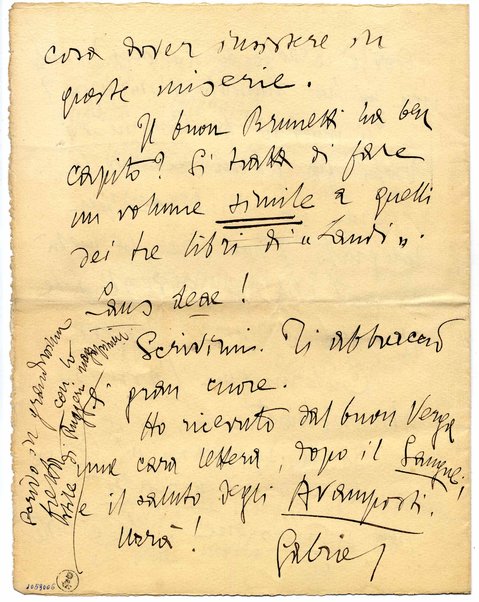 cosa dover insistere in
queste miserie.
Il buon Brunetti ha ben
capito? Si tratta di fare
un volume simile a quelli
dei tre libri di "Laudi".
Laus deae!
Scrivimi. Ti abbraccio
gran cuore.
Ho ricevuto dal buon Verga
una cara lettera, dopo il
e il saluto degli Avamposti.
Gabriel
in grandissima
fretta con lo
stile di Ruggeri
1059006